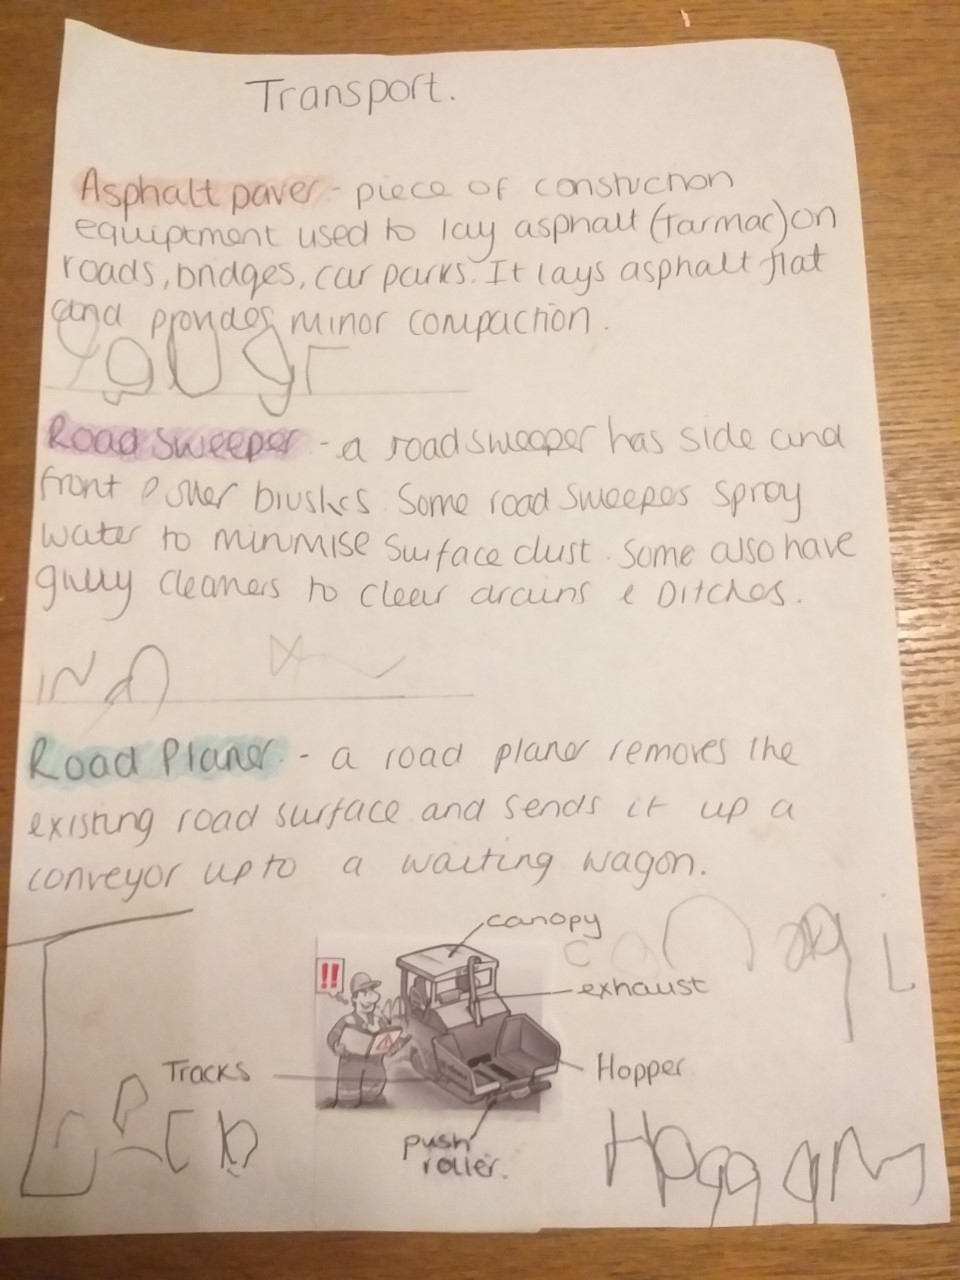 Transport.
Asphalt paver - piece of construction
equiptment used to lay asphalt (tarmac) on
roads, bridges, car parks. It lays asphalt flat
and provides minor compaction.
Road sweeper - a road sweeper has side and
front power brushes. Some road sweepes spray
water to minimise surface dust. Some also have
gully cleaners to clear drains & Ditches.
Road Planer - a road planer removes the
existing road surface and sends it up a
conveyor up to a waiting wagon.
canopy
!!
exhaust
Tracks
Hopper
push
roller.